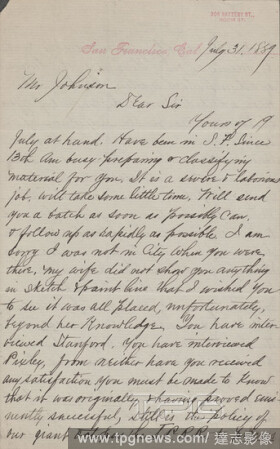 San Francisco, Cal July 31. 1889
Mr Johnson
Dear Sir
Yours of 19
July at hand. Have been in S. F. Since
13th Am busy preparing & classifying
material for you. It is a severe & laborious
job. will take some little time. Will send
you a batch as soon as Possibly Can.
& follow up as rapidly as possible. I am
sorry I was not in City when you were
there. my wife did not show you anything
in sketch & paint line that I wished you
to see it was all placed, unfortunately,
beyond her Knowledge. You have inter
viewed Stanford. You have interviewed
Pixley, from neither have you received
any satisfaction you must be made to Know
that it was originally, & having proved emi
nently successful, still is the policy of
our giant
www.tpgnews.com / 達志影像